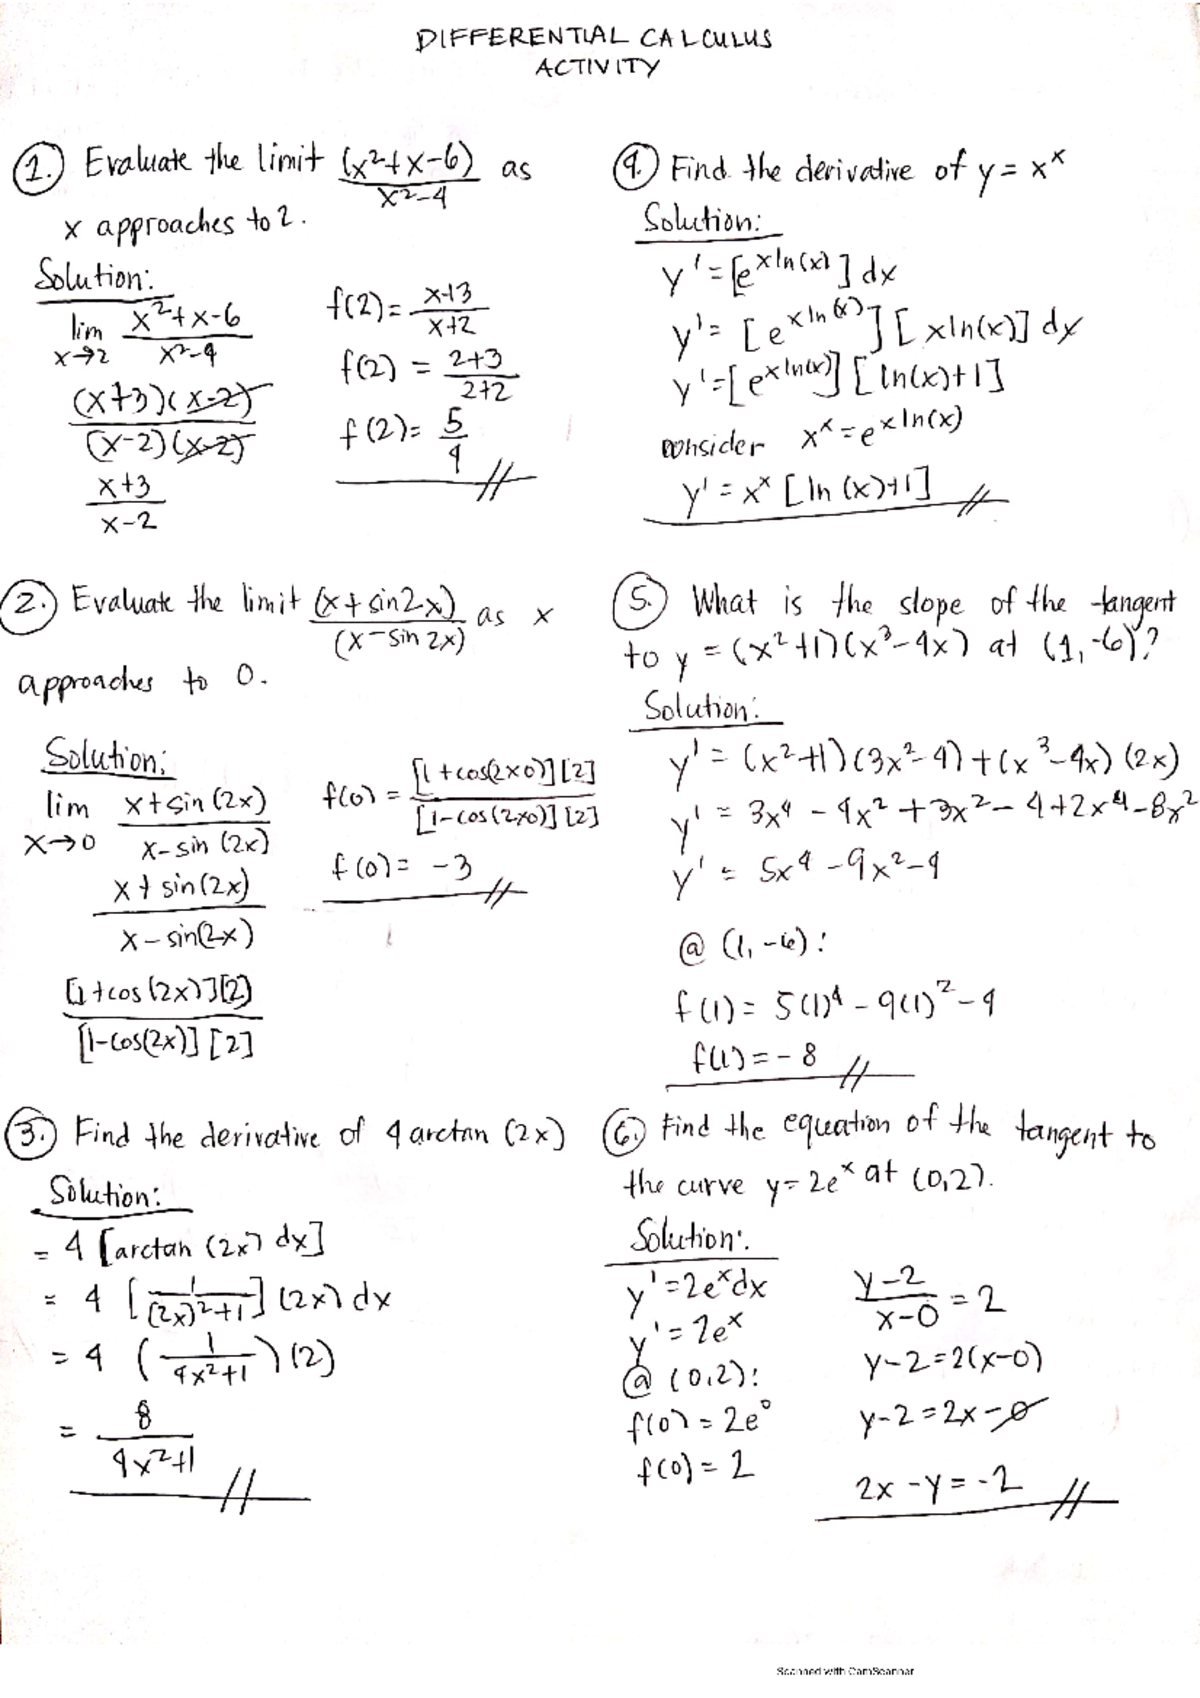 DIFFERENTIAL CALCULUS
ACTIVITY
1. Evaluate the limit (x²+x-6)/(x²-4) as
x approaches to 2.
Solution:
lim x→2 (x²+x-6)/(x²-4)
(x+3)(x-2)/(x-2)(x-2)
(x+3)/(x-2)
f(2) = (x+3)/(x+2)
f(2) = (2+3)/(2+2)
f(2) = 5/4
2. Evaluate the limit (x+sin2x)/(x-sin 2x) as x
approaches to 0.
Solution:
lim x→0 (x+sin(2x))/(x-sin(2x))
(x+sin(2x))/(x-sin(2x))
[1+cos(2x)][2]/[1-cos(2x)][2]
f(0) = [1+cos(2x0)][2]/[1-cos(2x0)][2]
f(0) = -3
3. Find the derivative of 4 arctan (2x)
Solution:
= 4 [arctan (2x) dx]
= 4 [1/((2x)²+1)] (2x) dx
= 4 (1/(4x²+1)) (2)
= 8/(4x²+1)
4. Find the derivative of y = x^x
Solution:
y' = [e^(xln(x))] dx
y' = [e^(xln(x))][xln(x)] dx
y' = [e^(xln(x))][ln(x)+1]
consider x^x = e^(xln(x))
y' = x^x [ln(x)+1]
5. What is the slope of the tangent
to y = (x²+1)(x³-4x) at (1,-6)?
Solution:
y' = (x²+1)(3x²-4)+(x³-4x)(2x)
y' = 3x⁴ - 4x² + 3x² - 4 + 2x⁴ - 8x²
y' = 5x⁴ - 9x² - 4
@ (1,-6):
f(1) = 5(1)⁴ - 9(1)² - 4
f(1) = -8
6. Find the equation of the tangent to
the curve y = 2e^x at (0,2).
Solution:
y' = 2e^x dx
y' = 2e^x
@ (0,2):
f(0) = 2e⁰
f(0) = 2
(y-2)/(x-0) = 2
y-2 = 2(x-0)
y-2 = 2x-0
2x - y = -2
Scanned with CamScanner